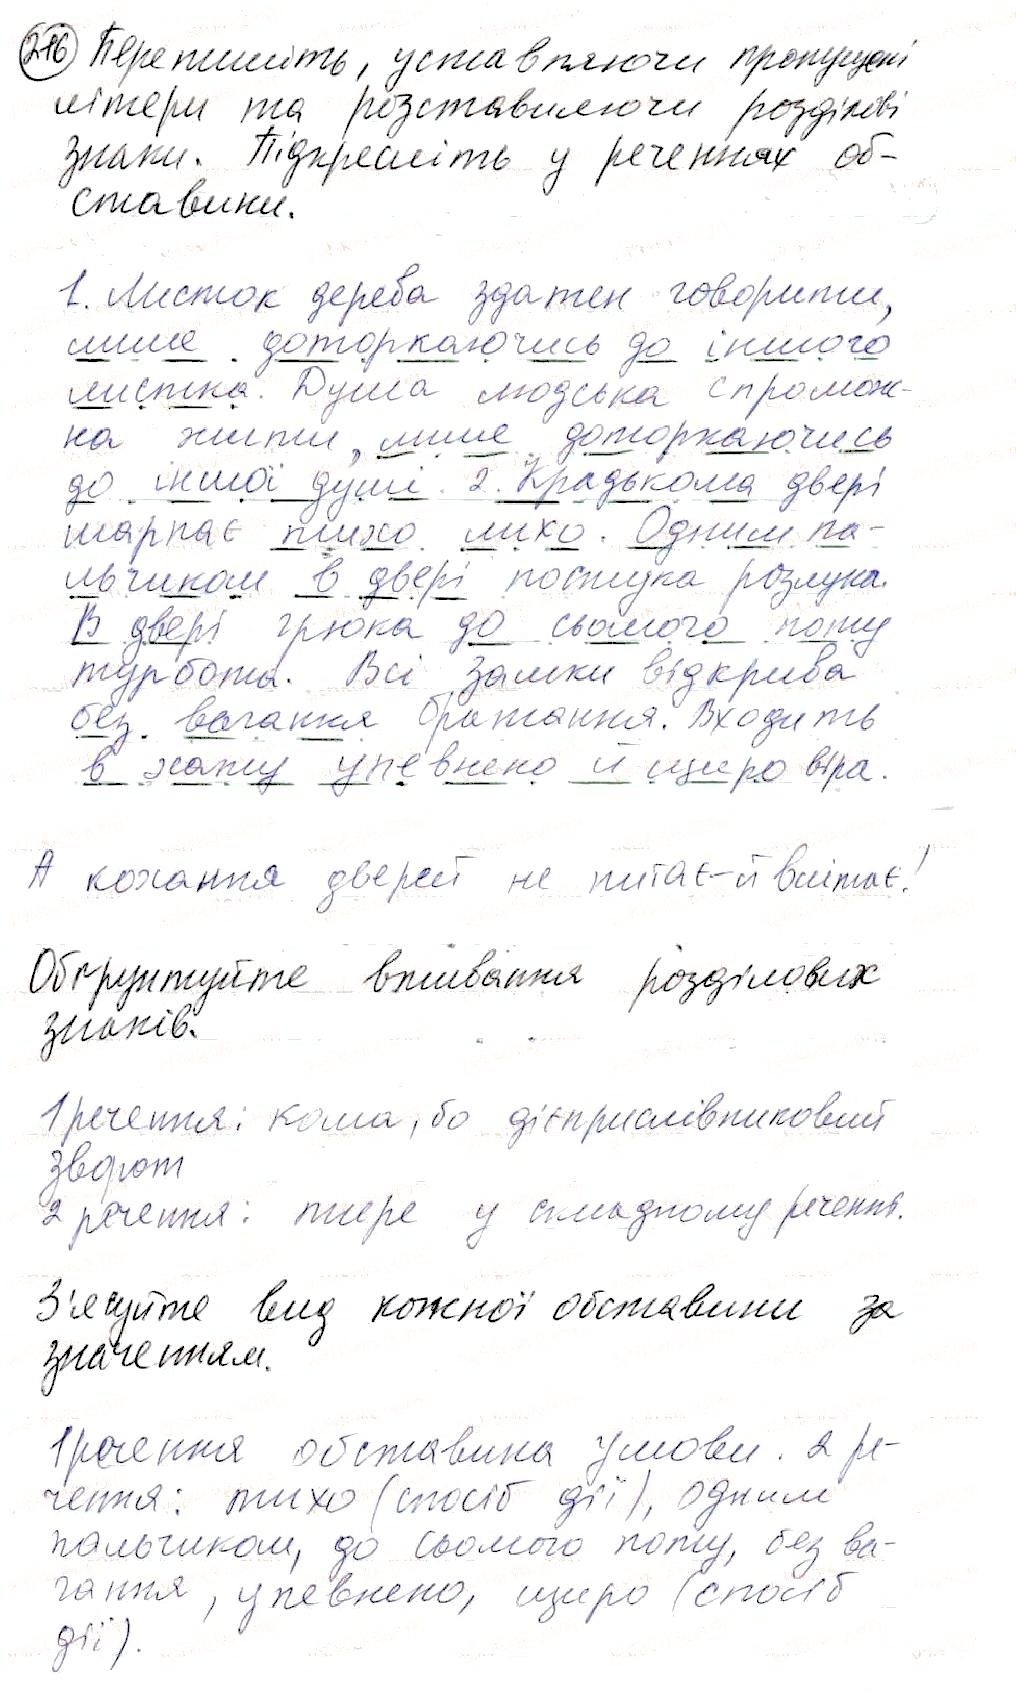 216 Перепишіть, уставляючи пропущені
літери та розставляючи розділові
знаки. Підкресліть у реченнях об-
ставини.
1. Листок дерева здатен говорити,
лише доторкаючись до іншого
листка. Душа людська спромож-
на жити, лише доторкаючись
до іншої душі. 2. Крадькома двері
шарпає тихо лихо. Одним па-
льчиком в двері постука розлука.
В двері грюка до сьомого поту
турбота. Всі замки відкрива
без вагання братання. Входить
в хату упевнено й щиро віра.
А кохання дверей не питає-й влітає!
Обґрунтуйте вживання розділових
знаків.
1 речення: кома, бо дієприслівниковий
зворот
2 речення: тире у складному реченні.
З'ясуйте вид кожної обставини за
значенням.
1 речення обставина умови. 2 ре-
чення: тихо (спосіб дії), одним
пальчиком, до сьомого поту, без ва-
гання, упевнено, щиро (спосіб
дії).